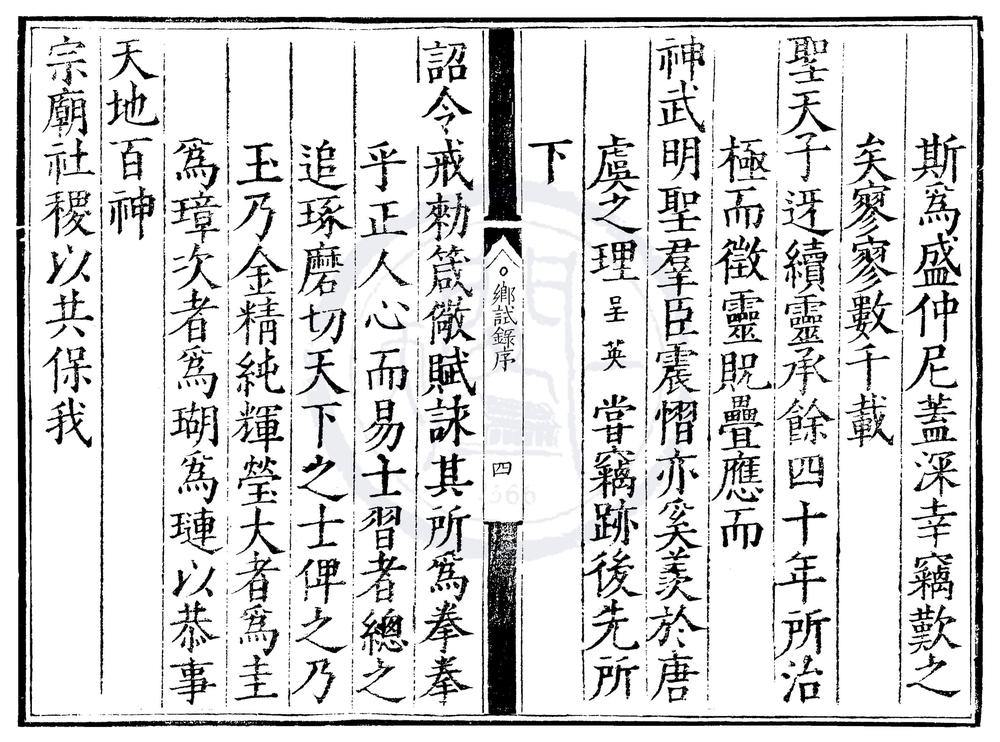 斯爲盛仲尼蓋深幸竊歎之
矣寥寥數千載
聖天子迓續靈承餘四十年所治
極而徵靈貺疊應而
神武明聖羣臣震慴亦奚羨於唐
虞之理呈英嘗竊跡後先所
下
鄉試錄序
四
詔令戒勑箴儆賦誄其所爲拳拳
乎正人心而易士習者總之
追琢磨切天下之士俾之乃
玉乃金精純輝瑩大者爲圭
爲璋次者爲瑚爲璉以恭事
天地百神
宗廟社稷以共保我